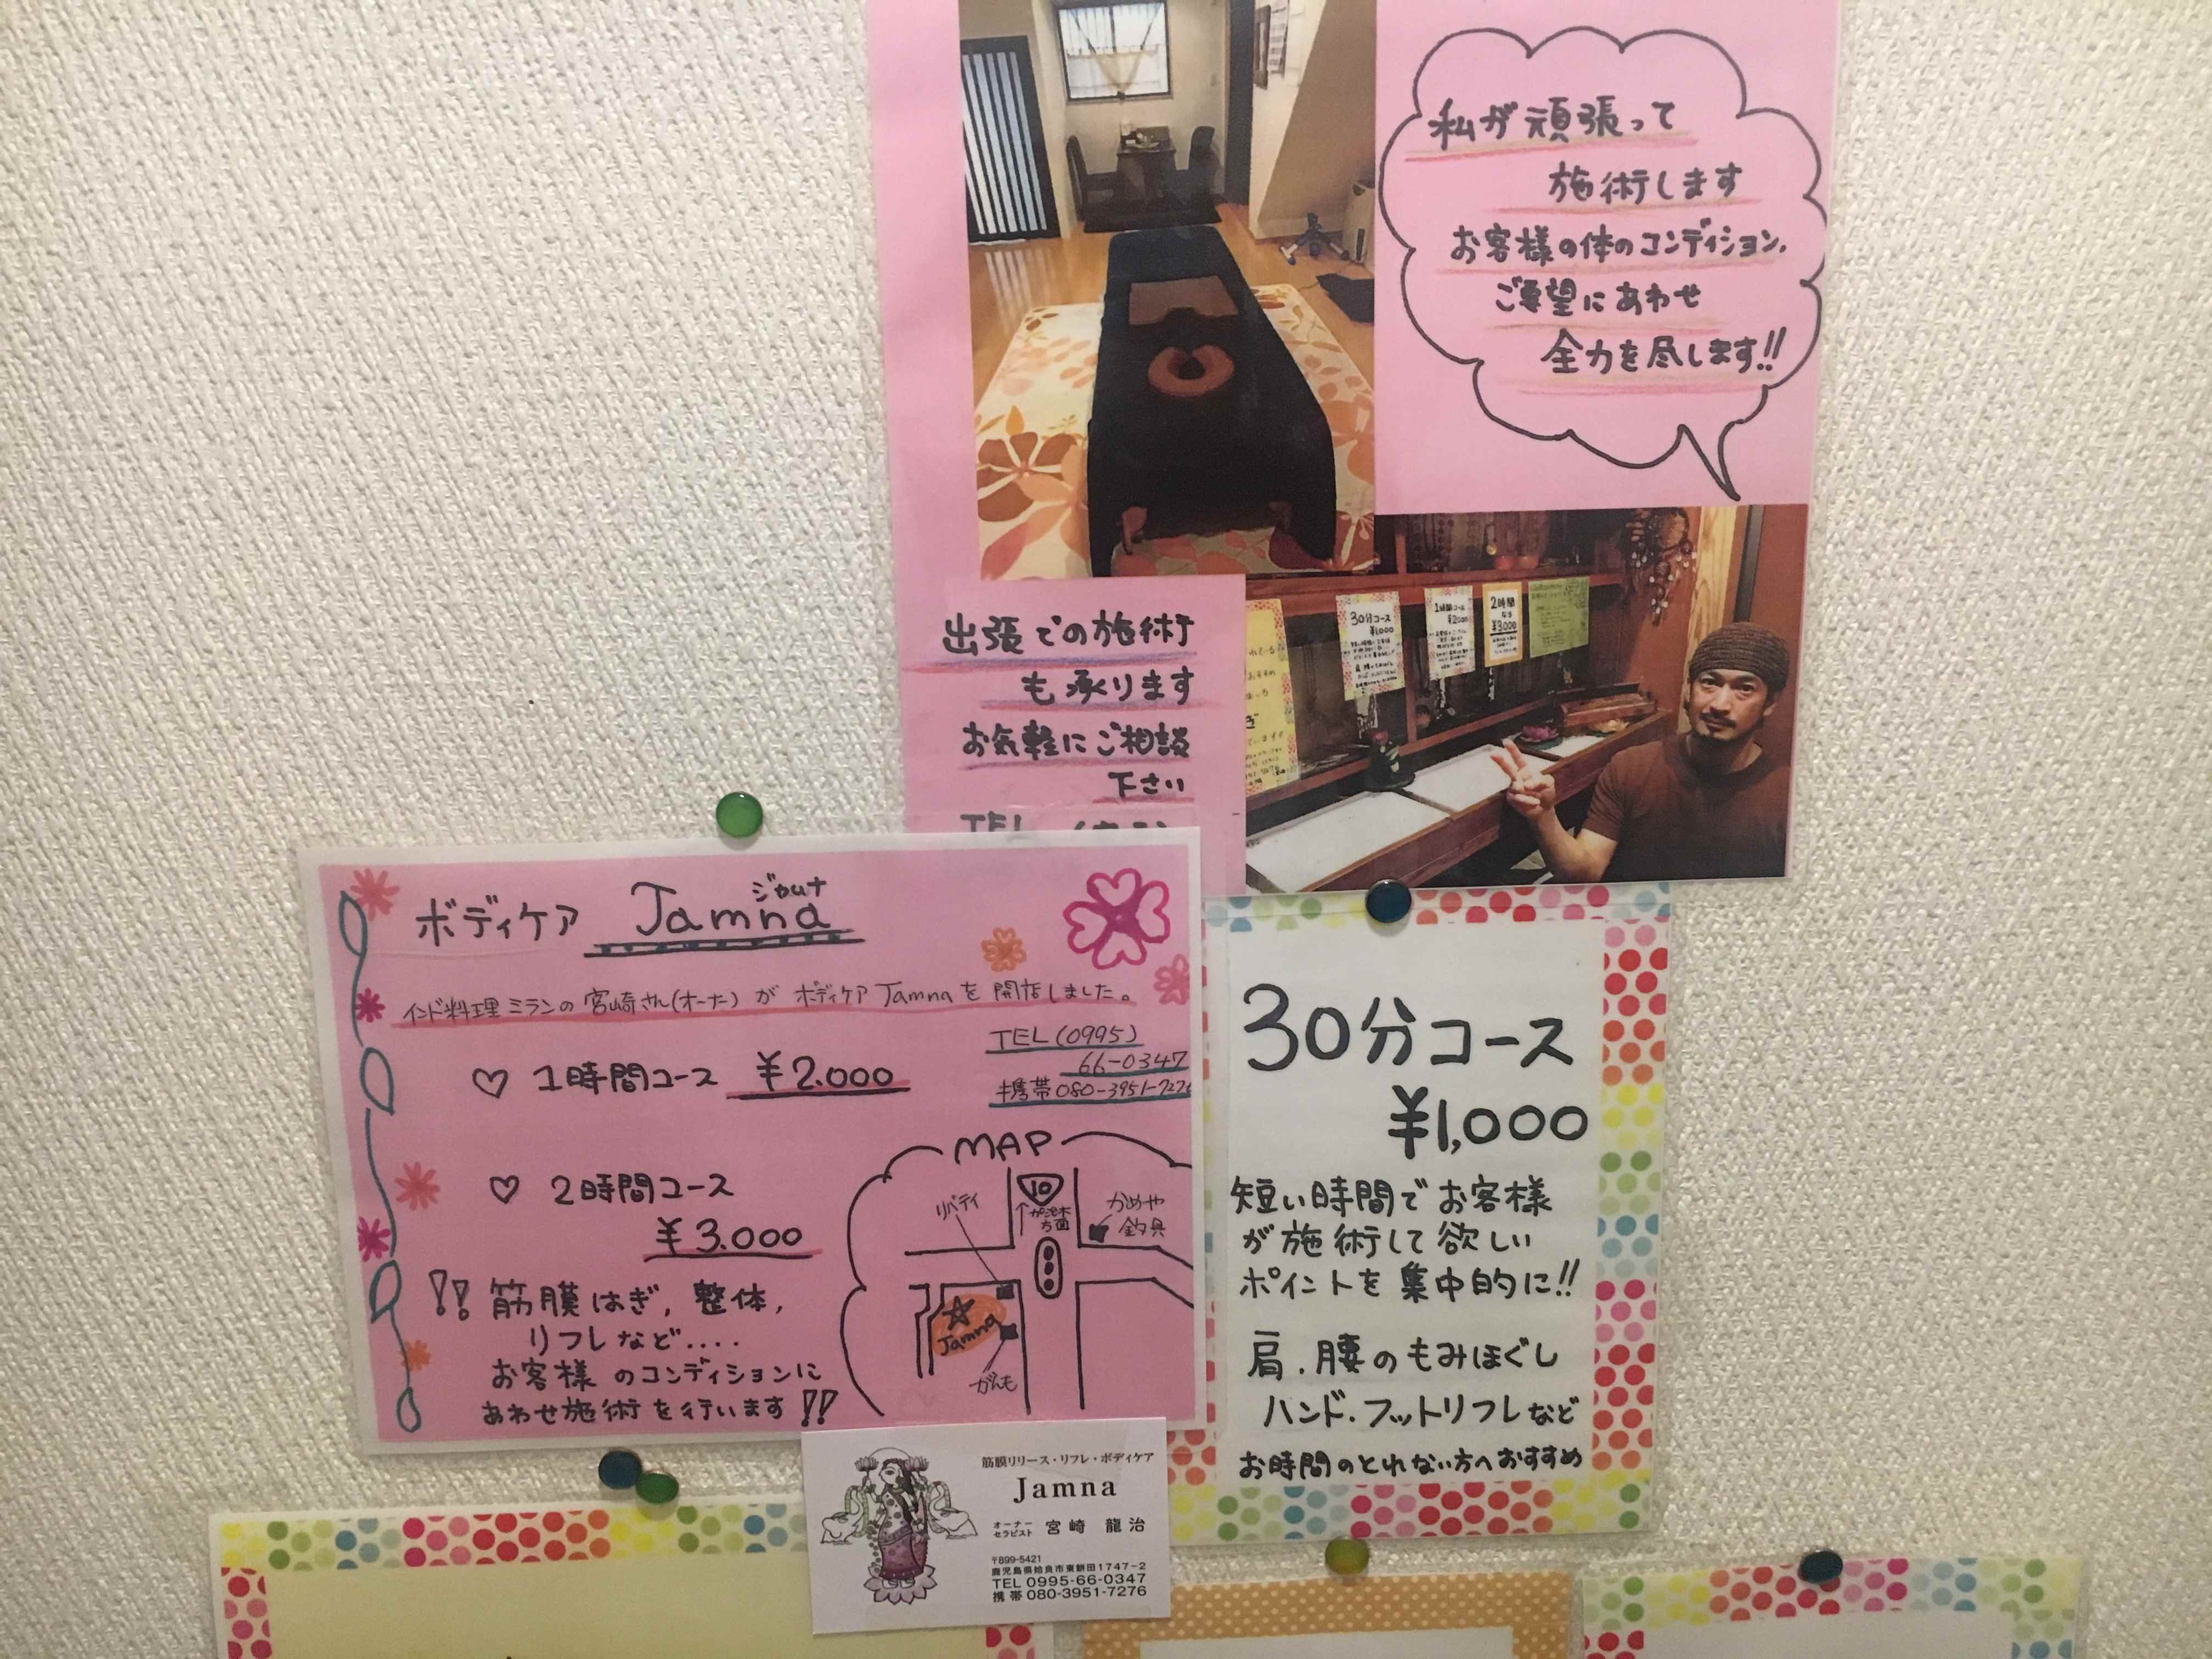 私が頑張って
施術します
お客様の体のコンディション、
ご要望にあわせ
全力を尽します!!
出張での施術
も承ります
お気軽にご相談
下さい
TEL
30分コース
¥1000
1時間コース
¥2000
2時間
¥3000
ボディケア Jamna
ジャムナ
インド料理ミランの宮崎さん(オーナー)がボディケアJamnaを開店しました。
TEL(0995)
66-0347
携帯080-3951-7276
♡ 1時間コース ¥2.000
♡ 2時間コース
¥3.000
!! 筋膜はぎ, 整体,
リフレなど....
お客様のコンディションに
あわせ施術を行います!!
MAP
10
加治木
方面
リバティ
かめや
釣具
Jamna
がんも
30分コース
¥1,000
短い時間でお客様
が施術して欲しい
ポイントを集中的に!!
肩.腰のもみほぐし
ハンド.フットリフレなど
お時間のとれない方へおすすめ
筋膜リリース・リフレ・ボディケア
Jamna
オーナー
セラピスト 宮崎 龍治
〒899-5421
鹿児島県姶良市東餅田1747-2
TEL 0995-66-0347
携帯 080-3951-7276